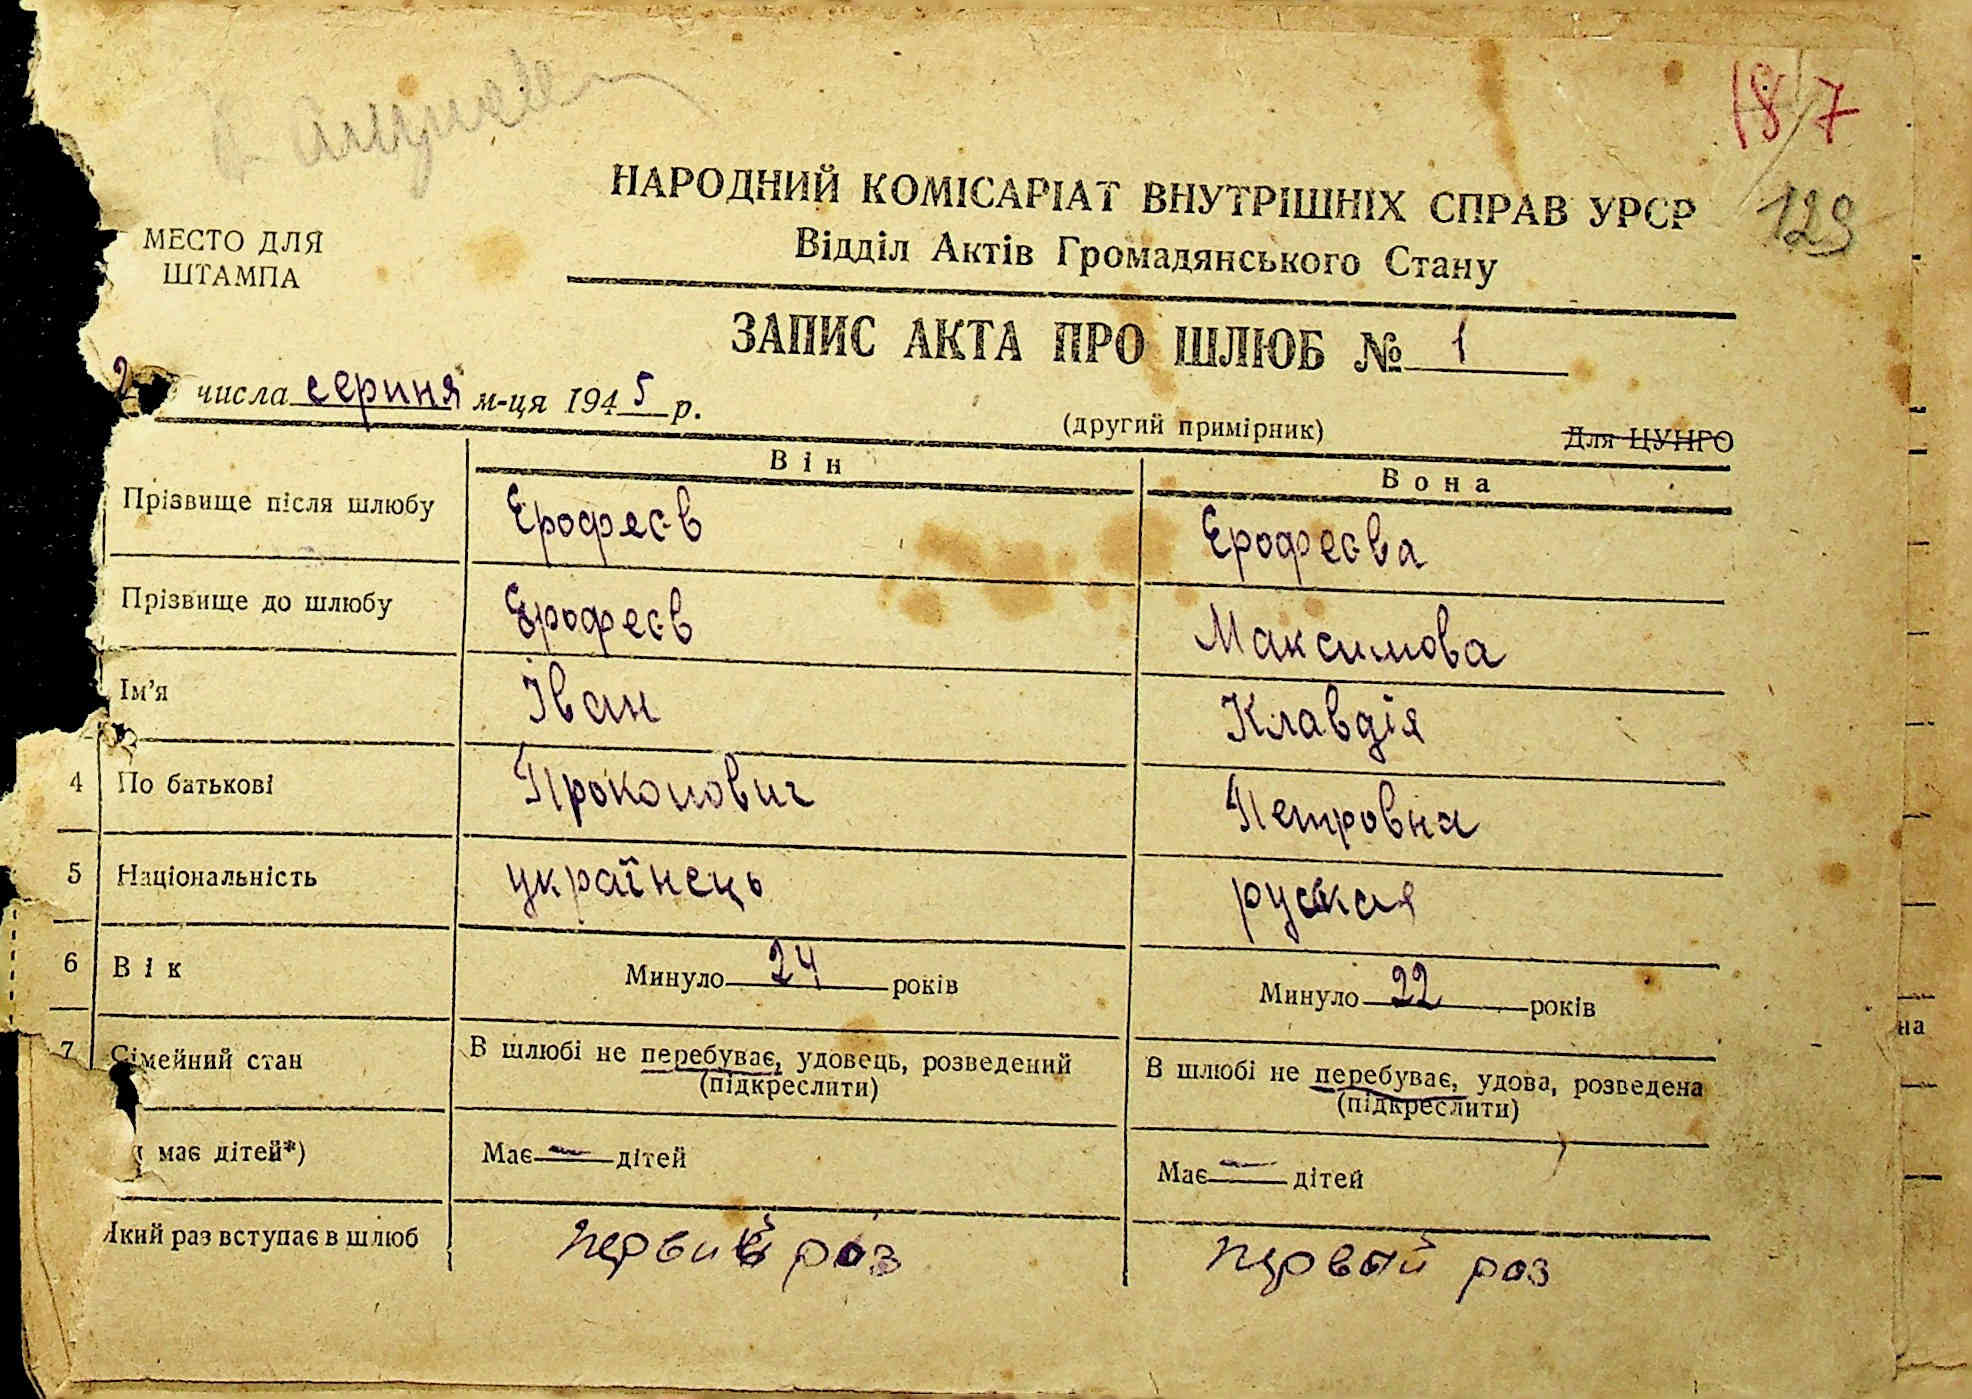 18/7
129
НАРОДНИЙ КОМІСАРІАТ ВНУТРІШНІХ СПРАВ УРСР
Відділ Актів Громадянського Стану
МЕСТО ДЛЯ
ШТАМПА
ЗАПИС АКТА ПРО ШЛЮБ № 1
2 числа серпня м-ця 1945 р.
(другий примірник) Для ЦУНГО
Він Вона
Прізвище після шлюбу Єрофеєв Єрофеєва
Прізвище до шлюбу Єрофеєв Максимова
Ім'я Іван Клавдія
4 По батькові Прокопович Петровна
5 Національність українець руская
6 Вік Минуло 24 років Минуло 22 років
7 Сімейний стан В шлюбі не перебуває, удовець, розведений В шлюбі не перебуває, удова, розведена
(підкреслити) (підкреслити)
має дітей*) Має — дітей Має — дітей
Який раз вступає в шлюб первий раз первый раз
на